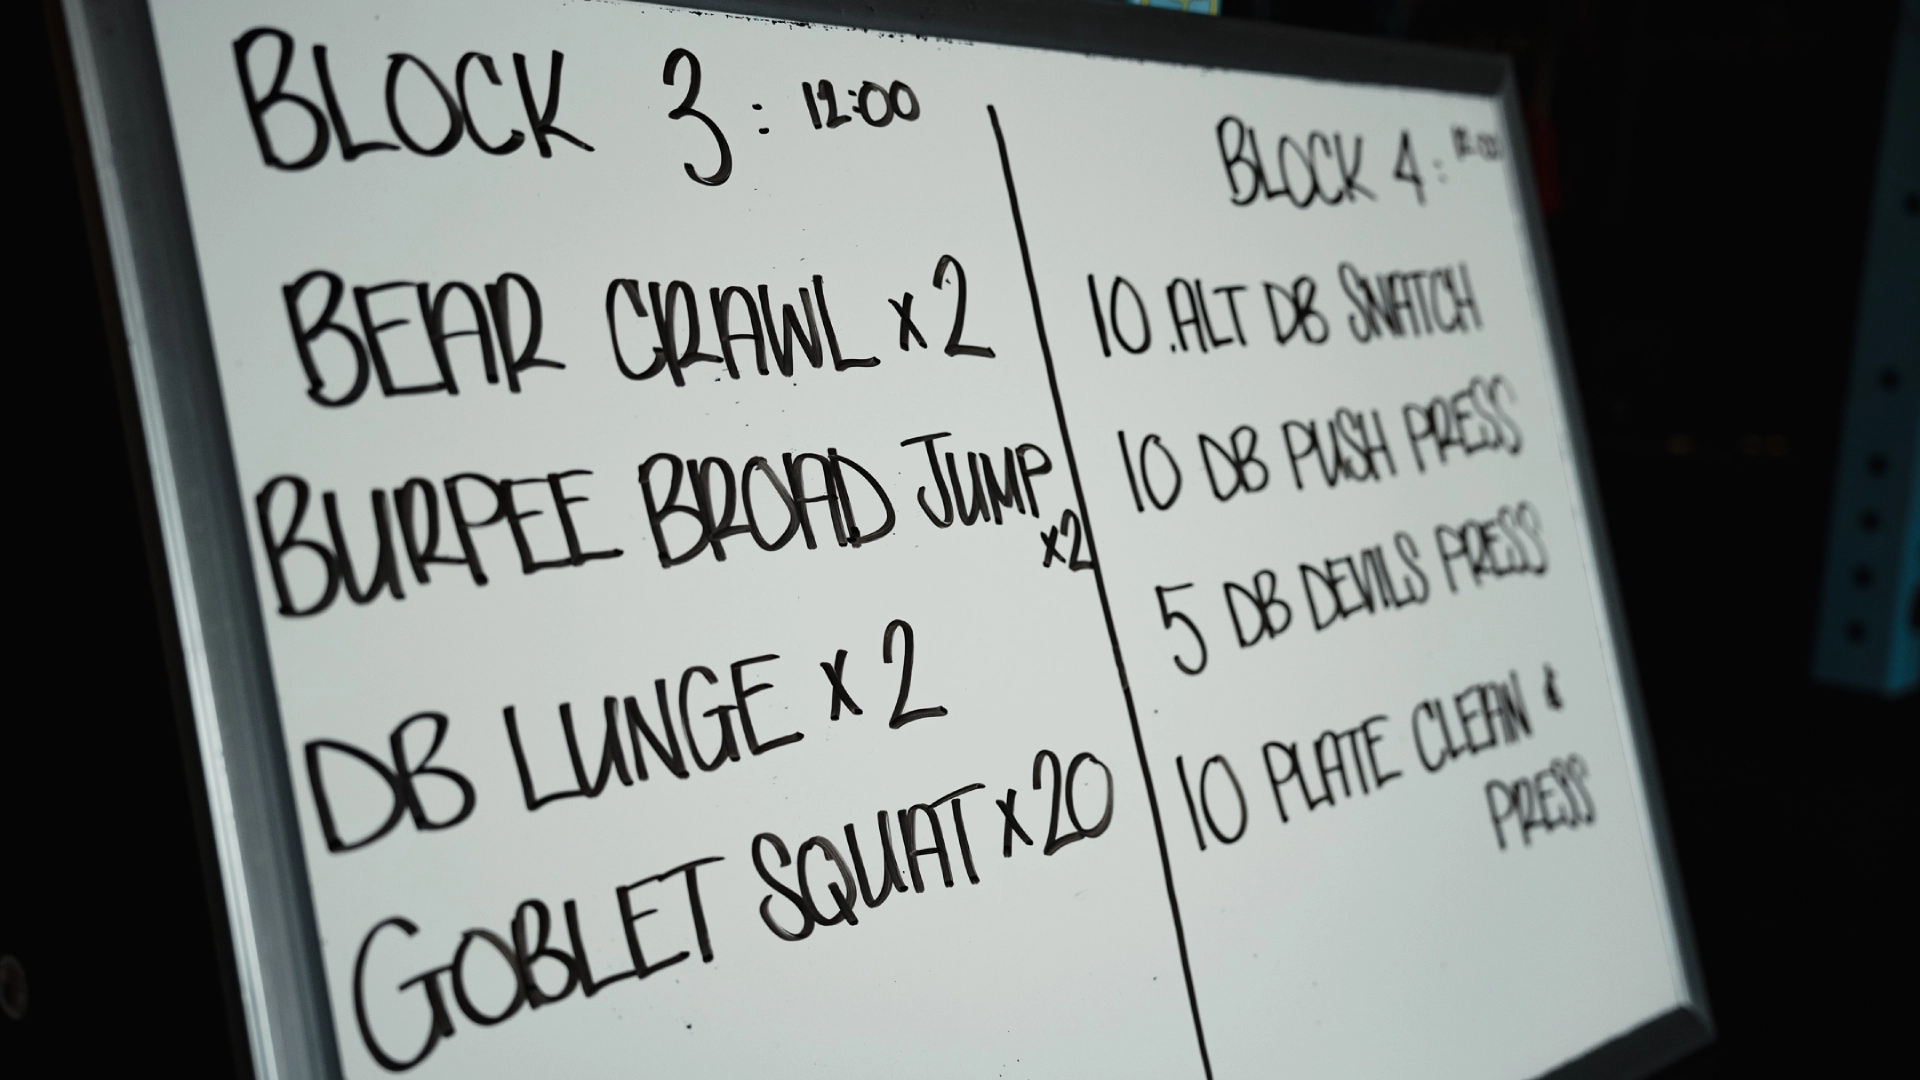 BLOCK 3: 12:00
BEAR CRAWL x2
BURPEE BROAD JUMP
x2
DB LUNGE x 2
GOBLET SQUAT x20
BLOCK 4:
10 ALT DB SNATCH
10 DB PUSH PRESS
5 DB DEVILS PRESS
10 PLATE CLEAN &
PRESS